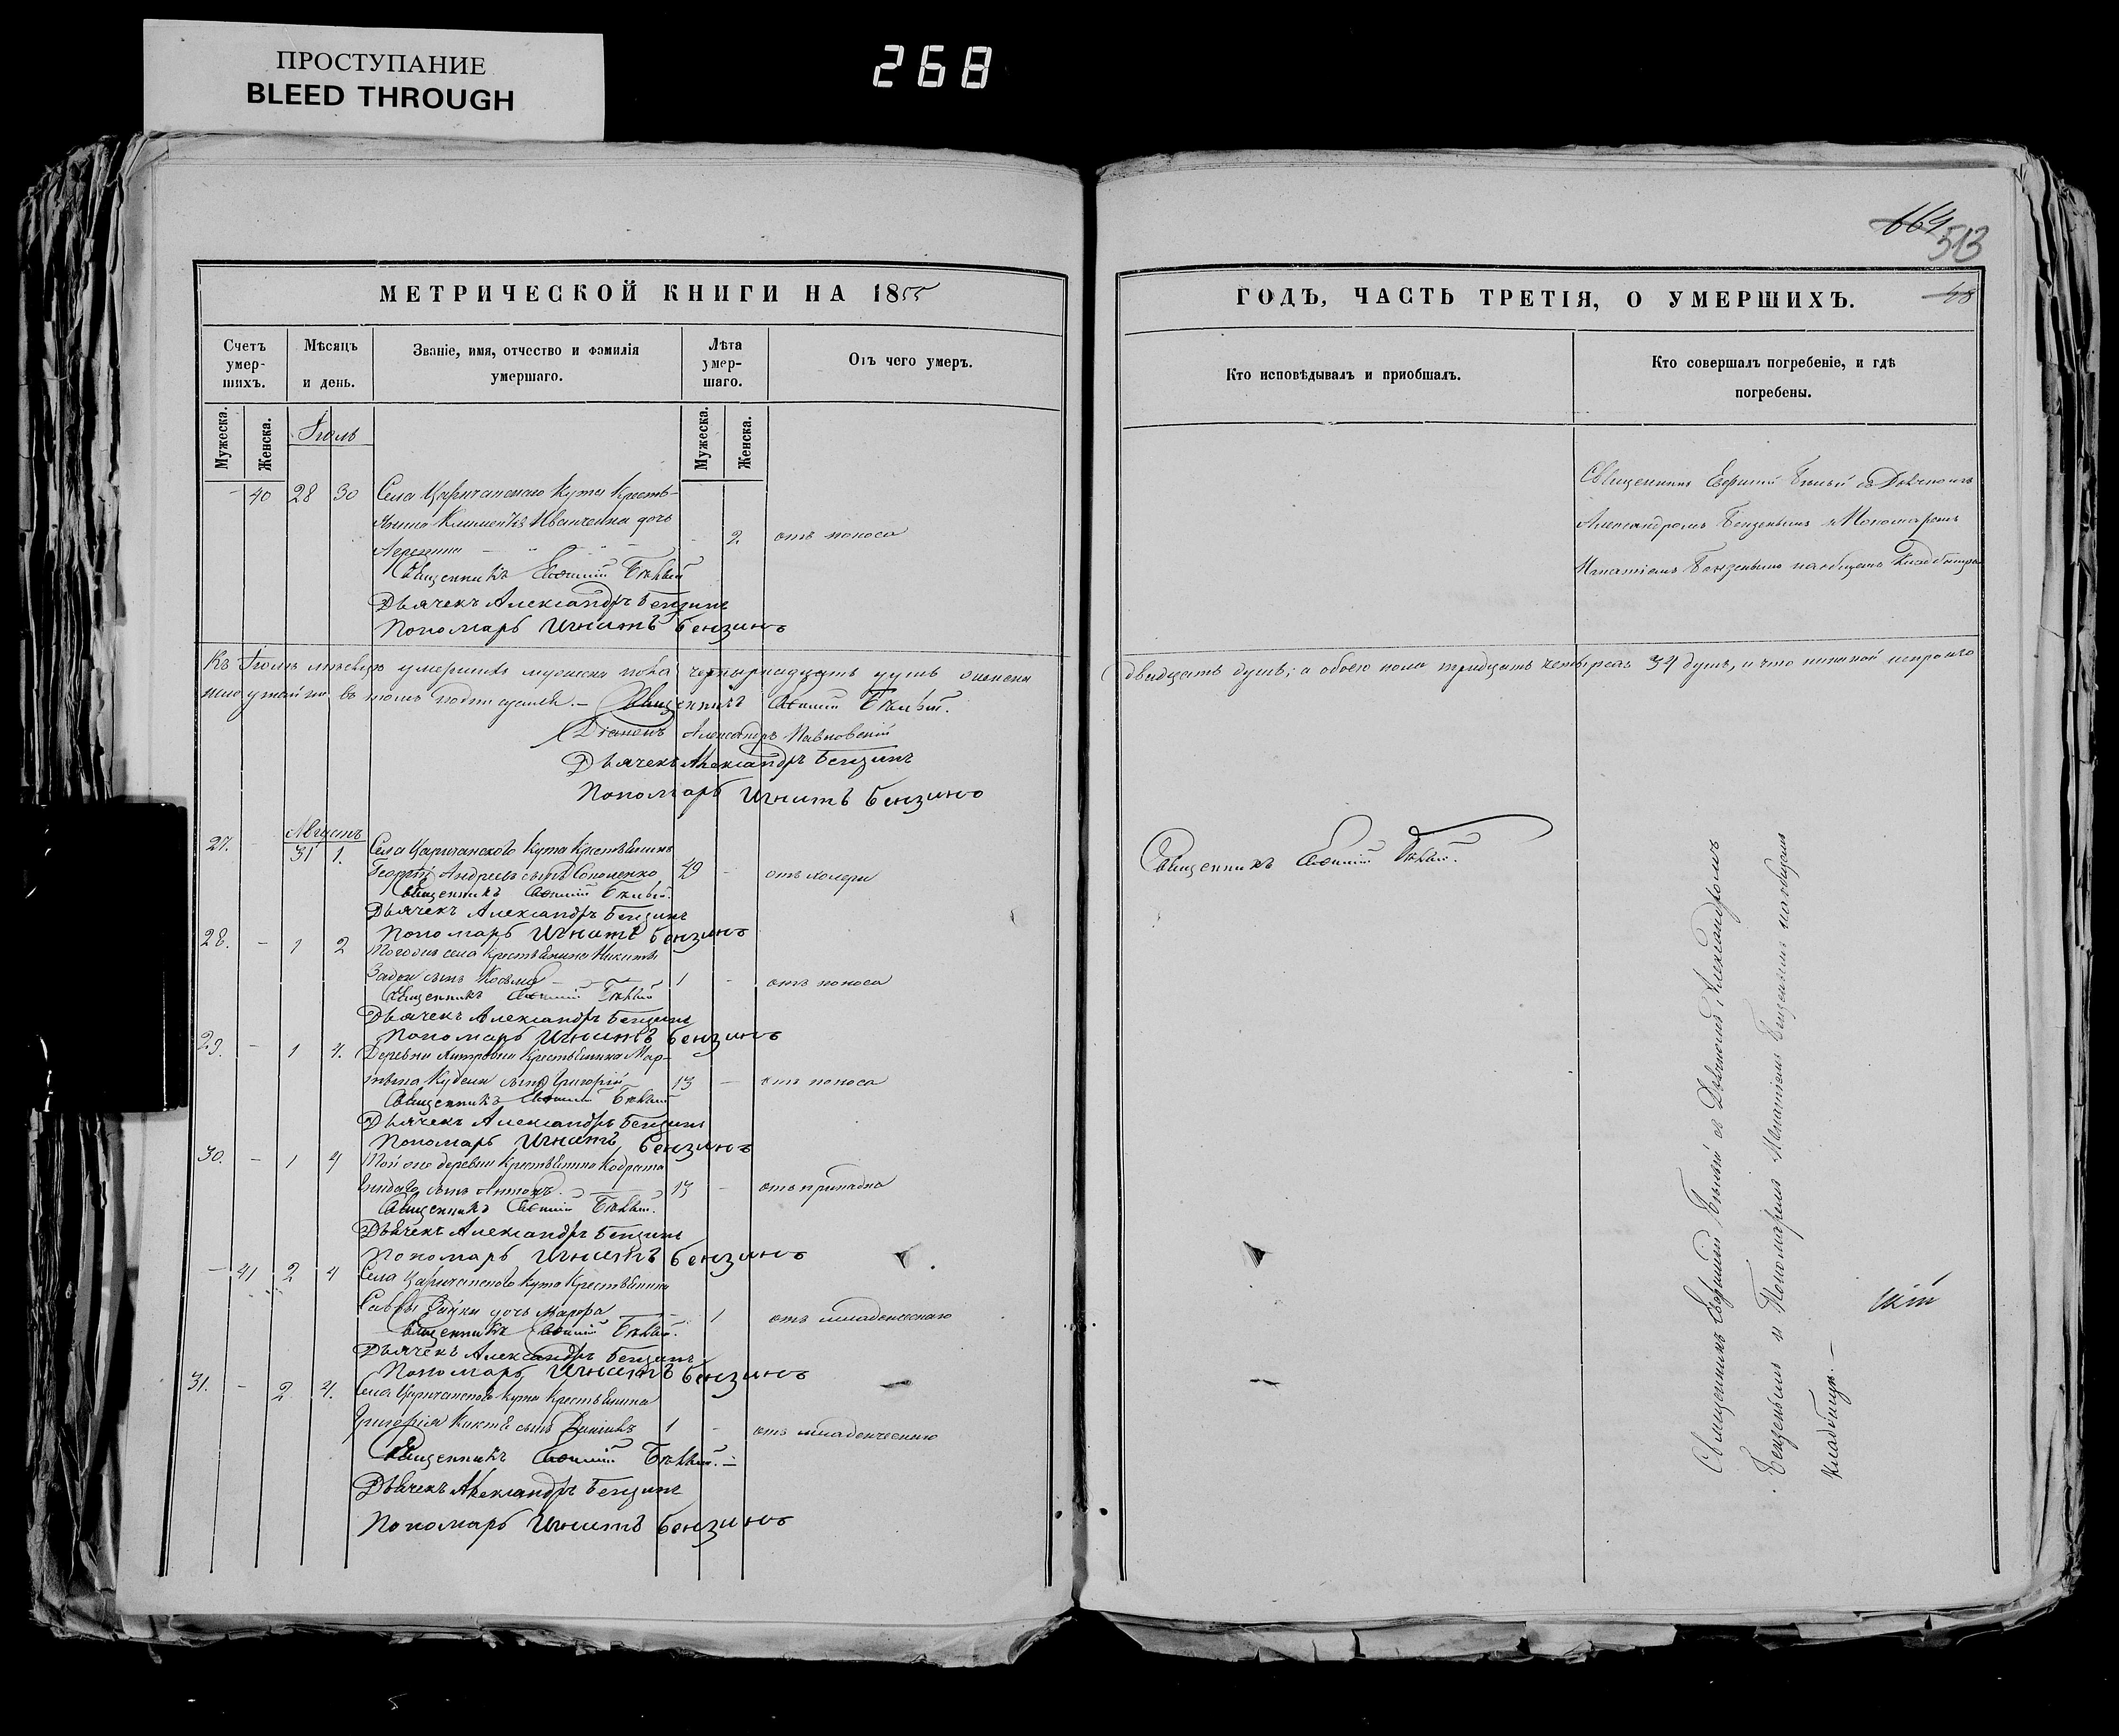 ПРОСТУПАНИЕ
BLEED THROUGH
268
664
513
МЕТРИЧЕСКОЙ КНИГИ НА 1855
ГОДЪ, ЧАСТЬ ТРЕТІЯ, О УМЕРШИХЪ.
48
Счетъ умер-шихъ.
Мѣсяцъ и день.
Званіе, имя, отчество и фамилія умершаго.
Лѣта умер-шаго.
Отъ чего умеръ.
Кто исповѣдывалъ и пріобщалъ.
Кто совершалъ погребеніе, и гдѣ погребены.
Мужеска.
Женска.
Мужеска.
Женска.
Іюль
- 40 28 30 Села Царичанскаго Кута Кресть-
янина Климента Иванченка дочь
- 2 отъ поноса
Священникъ Евфимій Бѣлый
Дьячекъ Александръ Бензинъ
Пономарь Игнатъ Бензинъ
Священникъ Евфимій Бѣлый съ Дьячкомъ
Александромъ Бензинымъ и Пономаремъ
Игнатіемъ Бензинымъ на общемъ Кладбищѣ
Къ Іюль мѣсяцъ умершихъ мужеска пола четырнадцать душъ а женска
двадцать душъ; а обоего пола тридцать четыре 34 душъ, и что
въ томъ подписуемся. – Священникъ Евфимій Бѣлый.
Діаконъ Александръ Павловскій
Дьячекъ Александръ Бензинъ
Пономарь Игнатъ Бензинъ
Августъ
27. - 31 1. Села Царичанского Кута Крестьянинъ
Георгій Андреевъ сынъ 49 - отъ холеры
Священникъ Евфимій Бѣлый.
Дьячекъ Александръ Бензинъ
Пономарь Игнатъ Бензинъ
Священникъ Евфимій Бѣлый.
28. - 1 2 Тогоже села Крестьянина Никиты
сынъ Косьма 1 - отъ поноса
Священникъ Евфимій Бѣлый
Дьячекъ Александръ Бензинъ
Пономарь Игнатъ Бензинъ
29. - 1 4. Деревни Крестьянина Мар-
сынъ Григорій 13 - отъ поноса
Священникъ Евфимій Бѣлый
Дьячекъ Александръ Бензинъ
Пономарь Игнатъ Бензинъ
30. - 1 4 Той же деревни Крестьянина Кодрата
сынъ Антонъ. 13 - отъ припадка
Священникъ Евфимій Бѣлый.
Дьячекъ Александръ Бензинъ
Пономарь Игнатъ Бензинъ
- 41 2 4 Села Царичанского Кута Крестьянина
Саввы Зайки дочь Мавра - 1 отъ младенческаго
Священникъ Евфимій Бѣлый.
Дьячекъ Александръ Бензинъ
Пономарь Игнатъ Бензинъ
31. - 2 4. Села Царичанского Кута Крестьянина
Григорія сынъ 1 - отъ младенческаго
Священникъ Евфимій Бѣлый. –
Дьячекъ Александръ Бензинъ
Пономарь Игнатъ Бензинъ
Священникъ Евфимій Бѣлый съ Дьячкомъ Александромъ
Бензинымъ и Пономаремъ Игнатіемъ Бензинымъ на общемъ
кладбищѣ. –